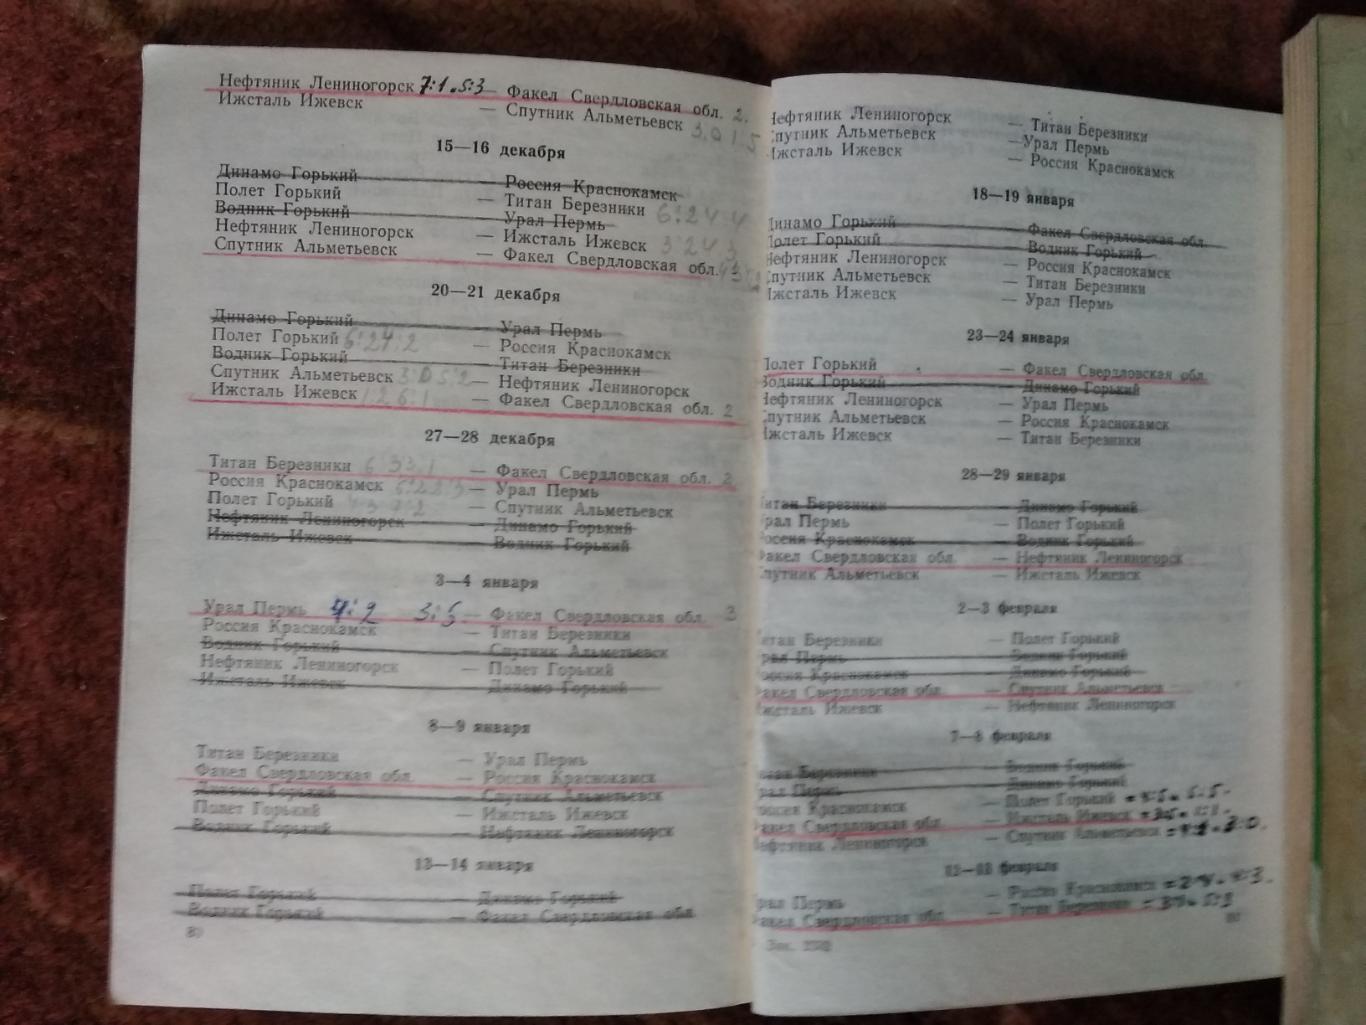 Нефтяник Лениногорск 7:1. 5:3 — Факел Свердловская обл. 2.
Ижсталь Ижевск — Спутник Альметьевск
15—16 декабря
Динамо Горький — Россия Краснокамск
Полет Горький — Титан Березники
Водник Горький — Урал Пермь
Нефтяник Лениногорск — Ижсталь Ижевск
Спутник Альметьевск — Факел Свердловская обл.
20—21 декабря
Динамо Горький — Урал Пермь
Полет Горький — Россия Краснокамск
Водник Горький — Титан Березники
Спутник Альметьевск — Нефтяник Лениногорск
Ижсталь Ижевск — Факел Свердловская обл. 2
27—28 декабря
Титан Березники — Факел Свердловская обл. 2
Россия Краснокамск — Урал Пермь
Полет Горький — Спутник Альметьевск
Нефтяник Лениногорск — Динамо Горький
Ижсталь Ижевск — Водник Горький
3—4 января
Урал Пермь 4:2 3:5 — Факел Свердловская обл. 3
Россия Краснокамск — Титан Березники
Водник Горький — Спутник Альметьевск
Нефтяник Лениногорск — Полет Горький
Ижсталь Ижевск — Динамо Горький
8—9 января
Титан Березники — Урал Пермь
Факел Свердловская обл. — Россия Краснокамск
Динамо Горький — Спутник Альметьевск
Полет Горький — Ижсталь Ижевск
Водник Горький — Нефтяник Лениногорск
13—14 января
Полет Горький — Динамо Горький
Водник Горький — Факел Свердловская обл.
Нефтяник Лениногорск — Титан Березники
Спутник Альметьевск — Урал Пермь
Ижсталь Ижевск — Россия Краснокамск
18—19 января
Динамо Горький — Факел Свердловская обл.
Полет Горький — Водник Горький
Нефтяник Лениногорск — Россия Краснокамск
Спутник Альметьевск — Титан Березники
Ижсталь Ижевск — Урал Пермь
23—24 января
Полет Горький — Факел Свердловская обл.
Водник Горький — Динамо Горький
Нефтяник Лениногорск — Урал Пермь
Спутник Альметьевск — Россия Краснокамск
Ижсталь Ижевск — Титан Березники
28—29 января
Титан Березники — Динамо Горький
Урал Пермь — Полет Горький
Россия Краснокамск — Водник Горький
Факел Свердловская обл. — Нефтяник Лениногорск
Спутник Альметьевск — Ижсталь Ижевск
2—3 февраля
Титан Березники — Полет Горький
Урал Пермь — Водник Горький
Россия Краснокамск — Динамо Горький
Факел Свердловская обл. — Спутник Альметьевск
Ижсталь Ижевск — Нефтяник Лениногорск
7—8 февраля
Титан Березники — Водник Горький
Урал Пермь — Динамо Горький
Россия Краснокамск — Полет Горький
Факел Свердловская обл. — Ижсталь Ижевск
Нефтяник Лениногорск — Спутник Альметьевск
12—13 февраля
Урал Пермь — Россия Краснокамск
Факел Свердловская обл. — Титан Березники